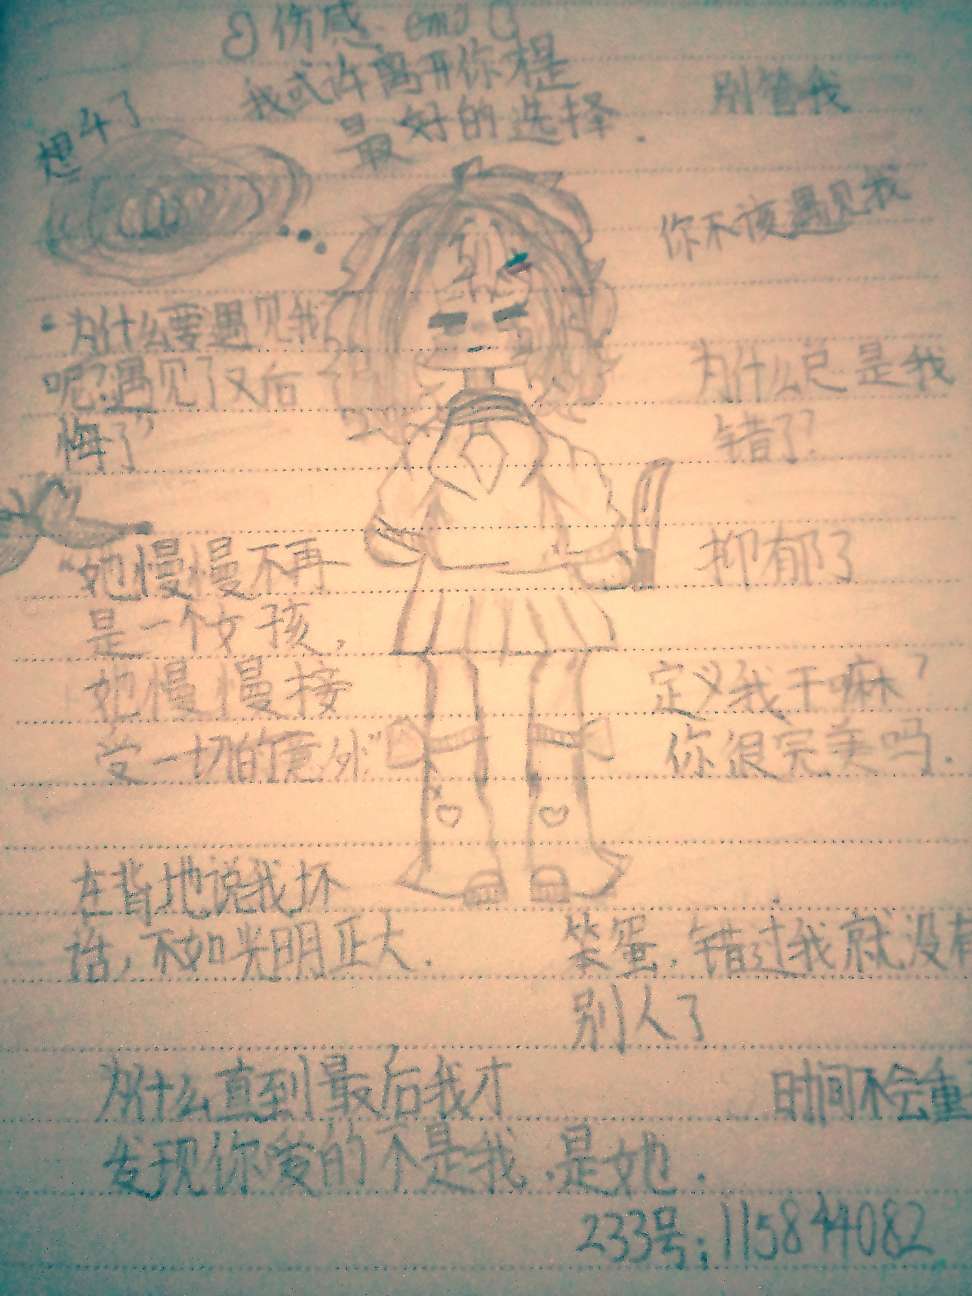 伤感 emo
我或许离开你才是
最好的选择.
别管我
想4了
你不该遇见我
“为什么要遇见我
呢?遇见了又后
悔了”
为什么总是我
错了?
“她慢慢不再
是一个女孩,
她慢慢接
受一切的意外”
抑郁了
定义我干嘛?
你很完美吗.
在背地说我坏
话,不如光明正大.
笨蛋,错过我就没有
别人了
为什么直到最后我才
发现你爱的不是我,是她.
时间不会重
233号:115844082